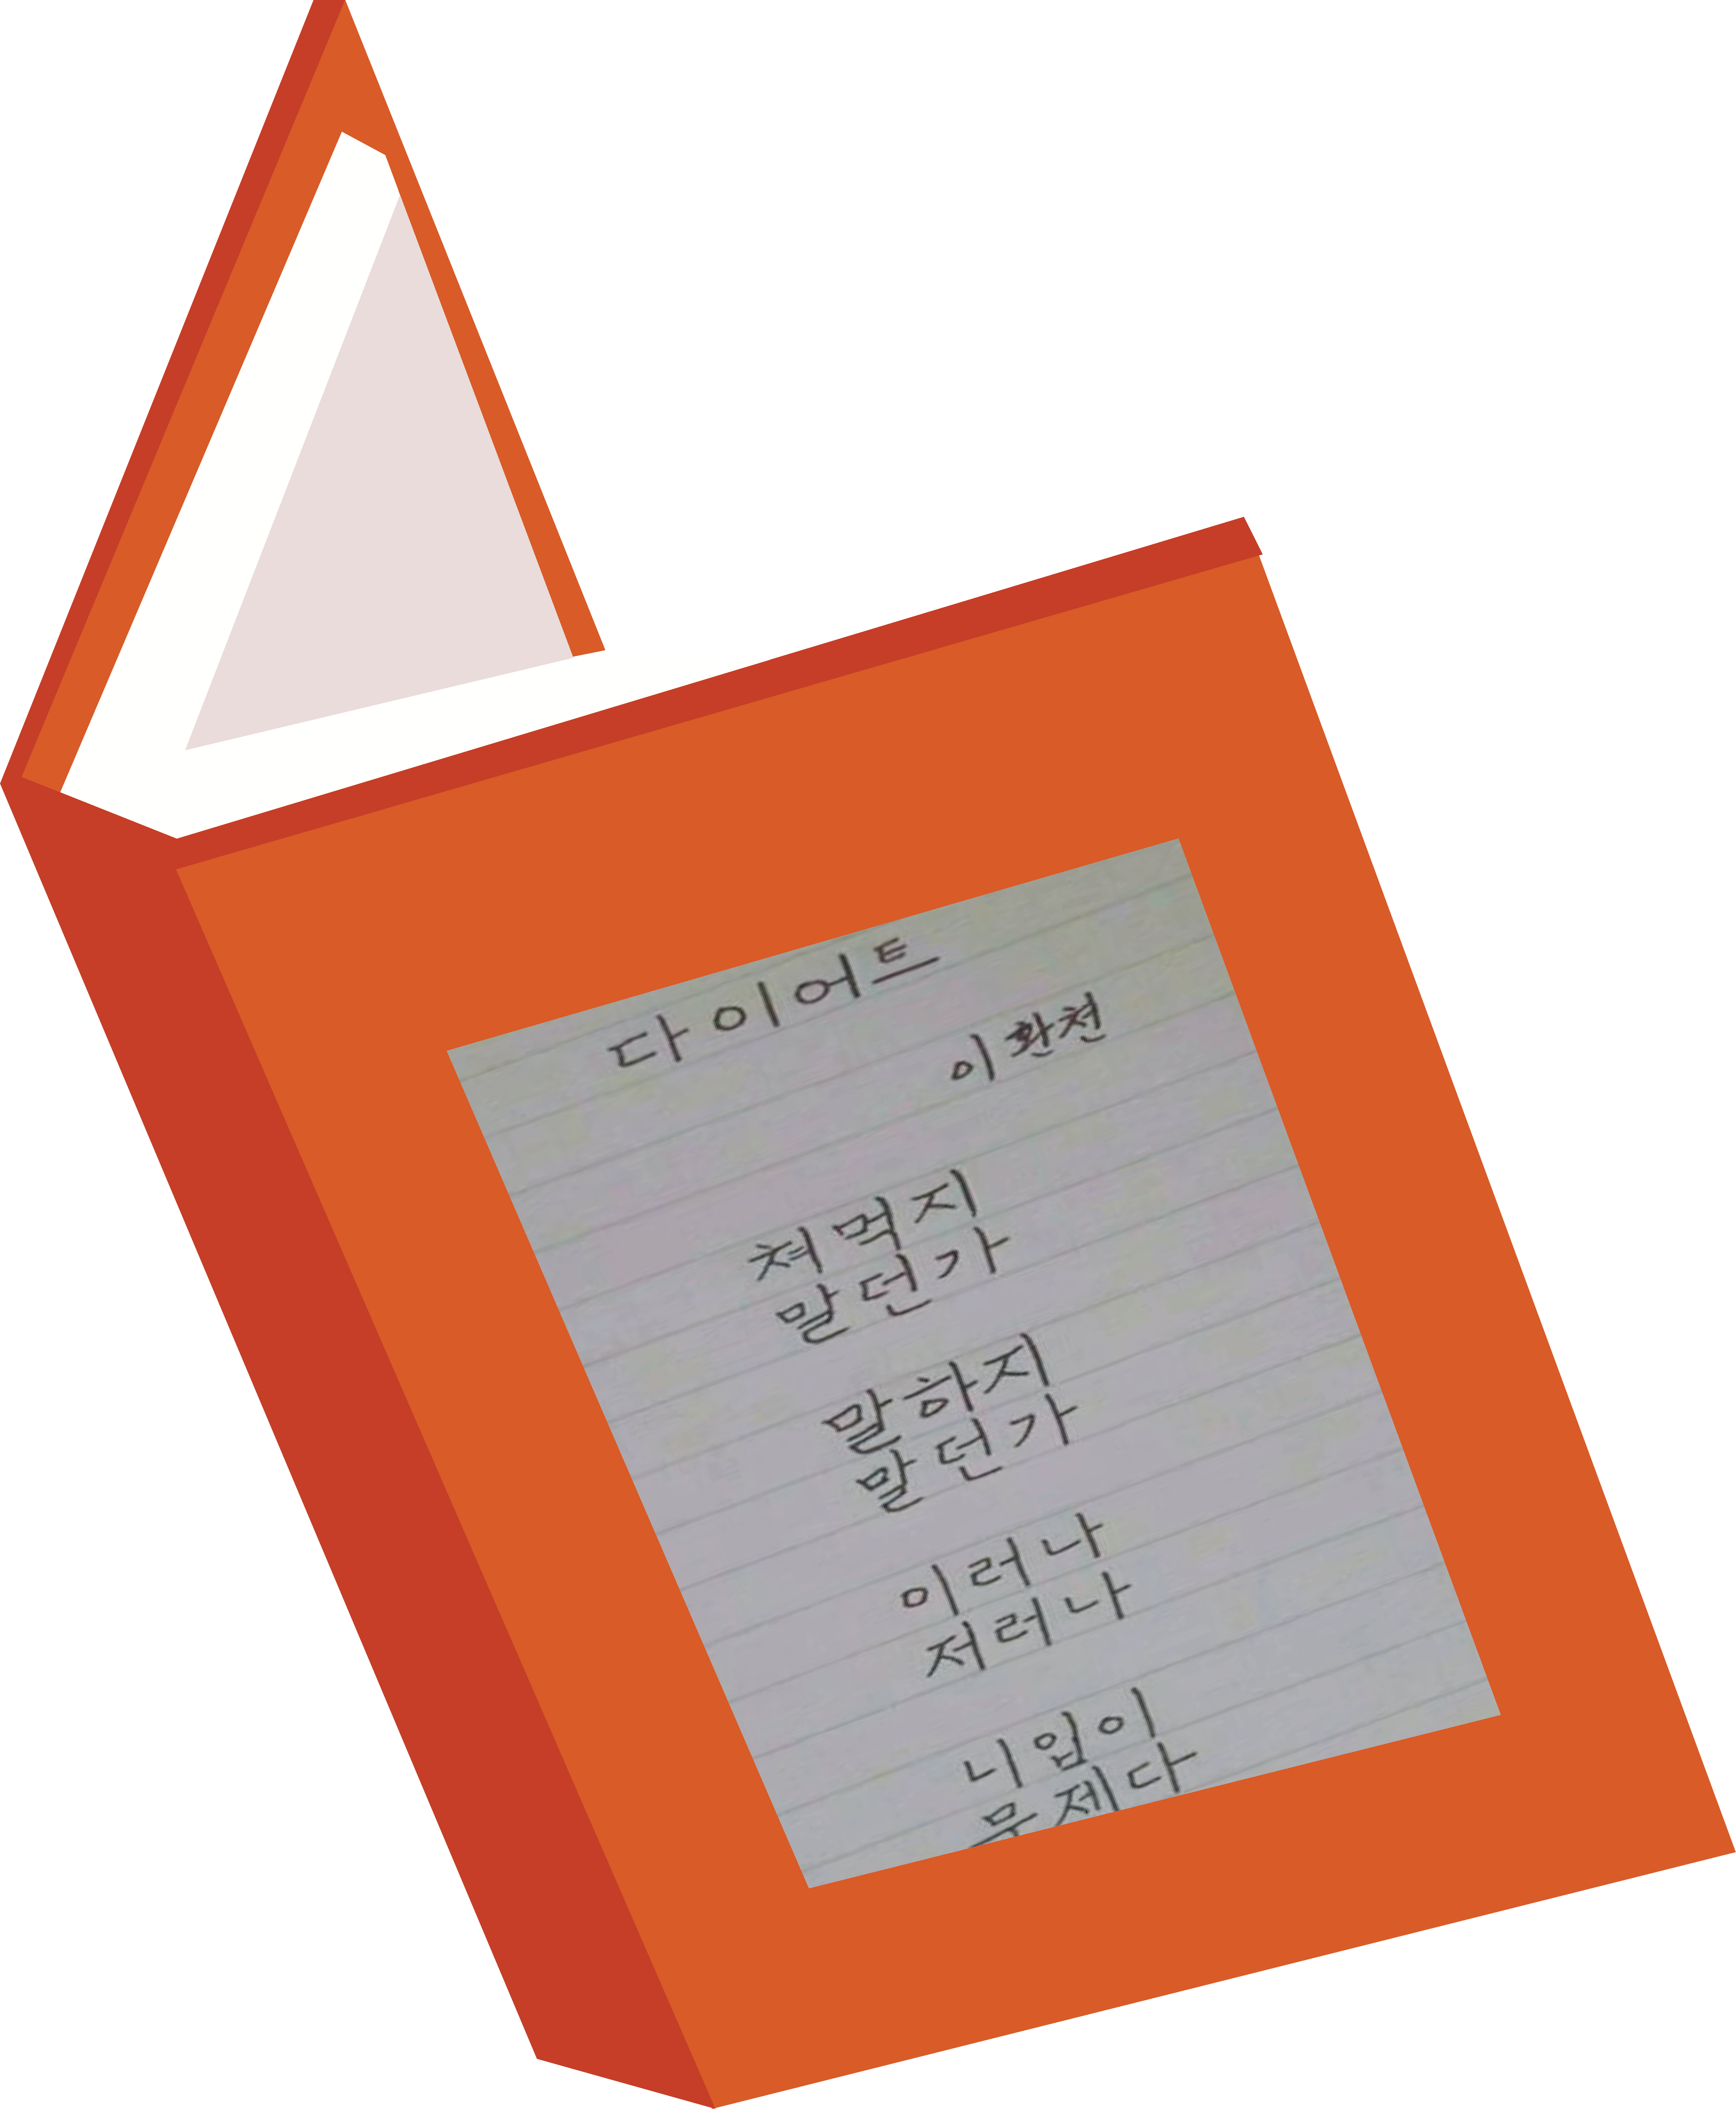 다이어트
이환천
쳐먹지
말던가
말하지
말던가
이러나
저러나
니입이
문제다